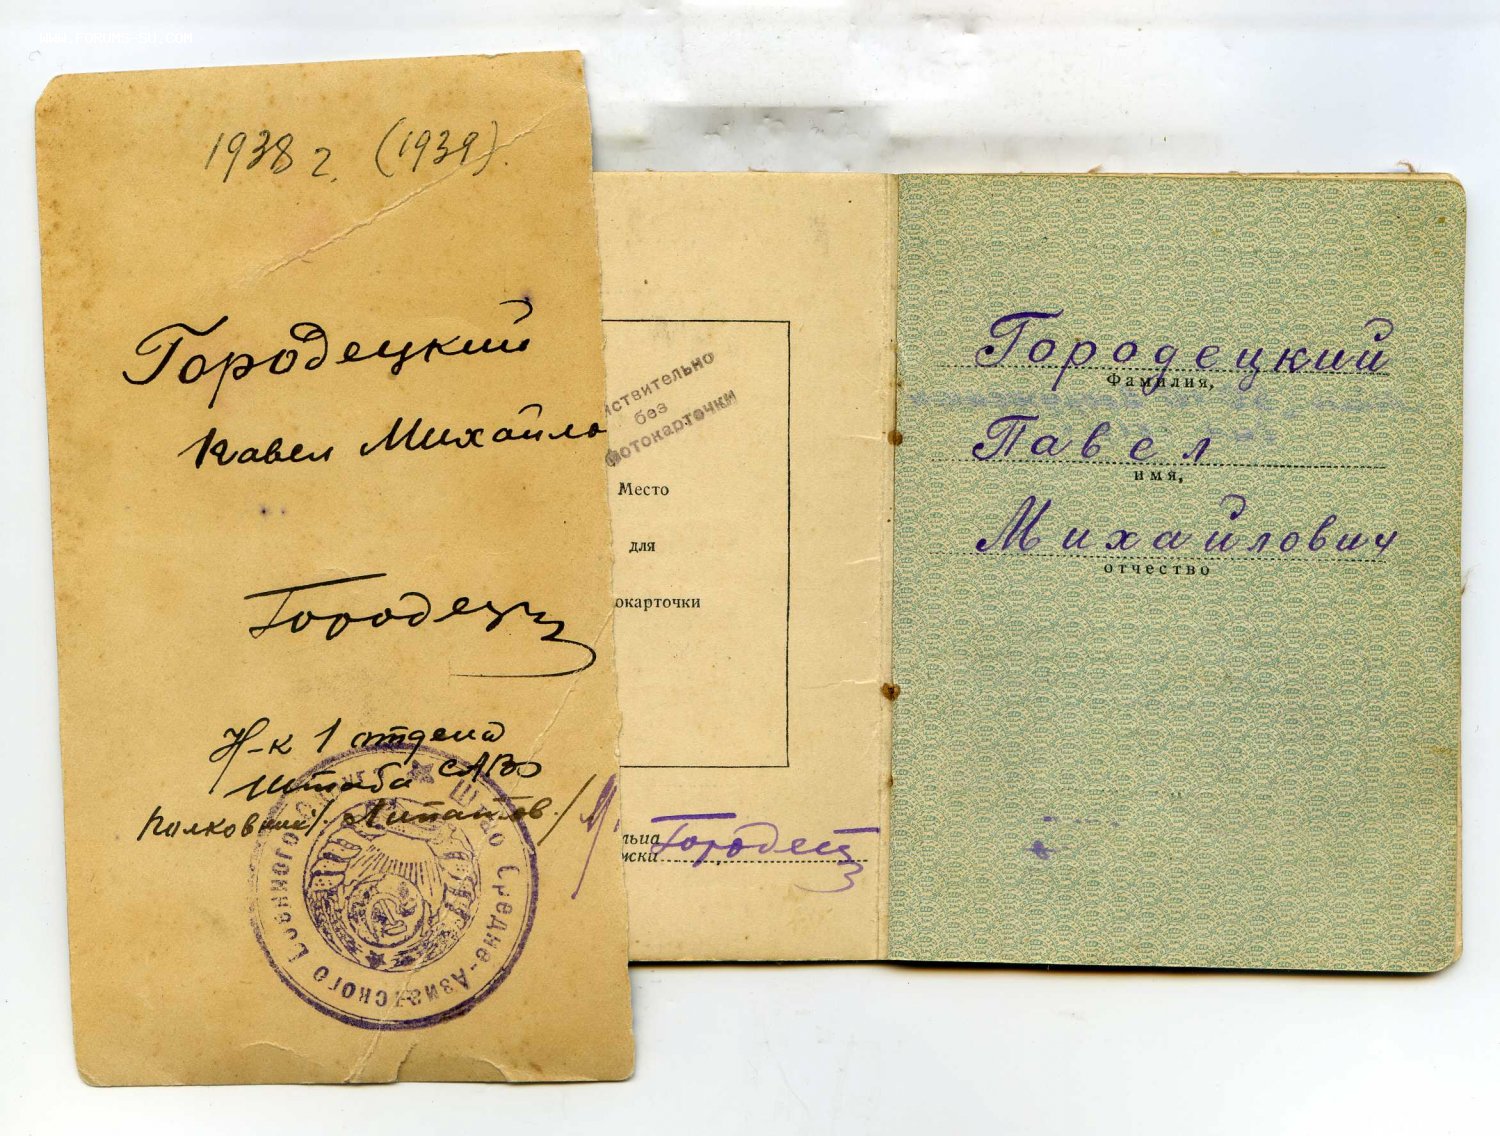 WWW.FORUMS-SU.COM
1938 г. (1939).
Городецкий
Павел Михайло
Городец
Н-к 1 отдела
Штаба САВО
Полковник /Липатов/
Штаб Средне-Азиатского Военного
йствительно
без
фотокарточки
Место
для
окарточки
льца
иски Городец
Городецкий
Фамилия,
Павел
имя,
Михайлович
отчество